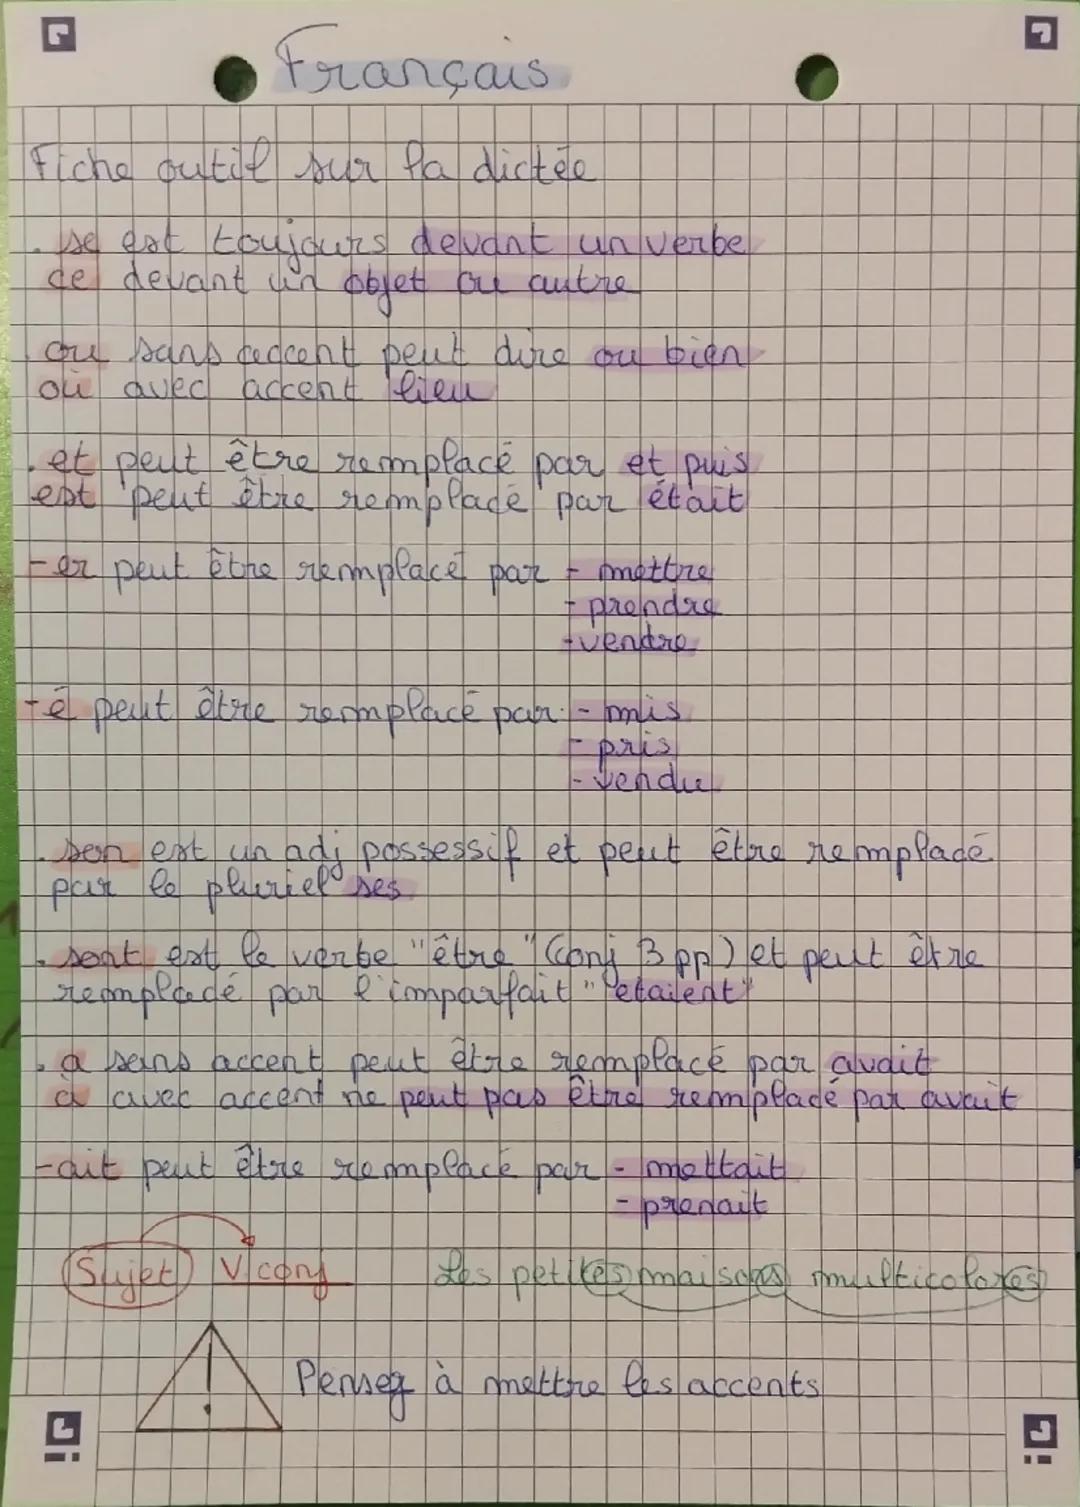 Français
Fiche outil sur la dictée
. se est toujours devant un verbe
ce devant un objet ou autre
. ou sans accent peut dire ou bien
où avec accent lieu
. et peut être remplacé par et puis
est peut être remplacé par était
-er peut être remplacé par - mettre
- prendre
- vendre
-é peut être remplacé par - mis
- pris
- vendu
. son est un adj possessif et peut être remplacé
par le pluriel ses
. sont est le verbe "être" (conj 3 pp) et peut être
remplacé par l'imparfait "étaient"
. a sans accent peut être remplacé par avait
à avec accent ne peut pas être remplacé par avait
-ait peut être remplacé par - mettait
- prenait
Sujet V conj Les petites maisons multicolores
! Pensez à mettre les accents